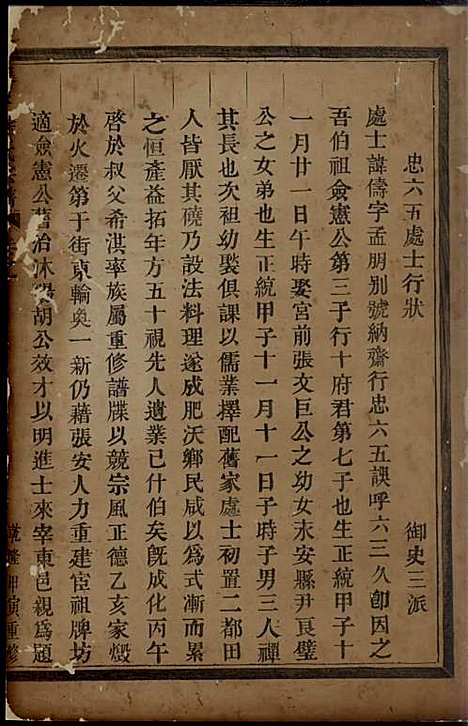 忠六五處士行狀 御史三派
處士諱儔字孟朋別號納齋行忠六五誤呼六三久卽因之
吾伯祖僉憲公第三子行十府君第七子也生正統甲子十
一月廿一日午時娶宮前張文巨公之幼女永安縣尹良璧
公之女弟也生正統甲子十一月十一日子時子男三人禪
其長也次祖幼褧俱課以儒業擇配舊家處士初置二都田
人皆厭其磽乃設法料理遂成肥沃鄉民咸以爲式漸而累
之恒產益拓年方五十視先人遺業已什伯矣旣成化丙午
啓於叔父希淇率族屬重修譜牒以競宗風正德乙亥家燬
於火遷第于街東輪奐一新仍藉張安人力重建宦祖牌坊
適僉憲公舊治休 胡公效才以明進士來宰東邑親爲題
乾隆 重修